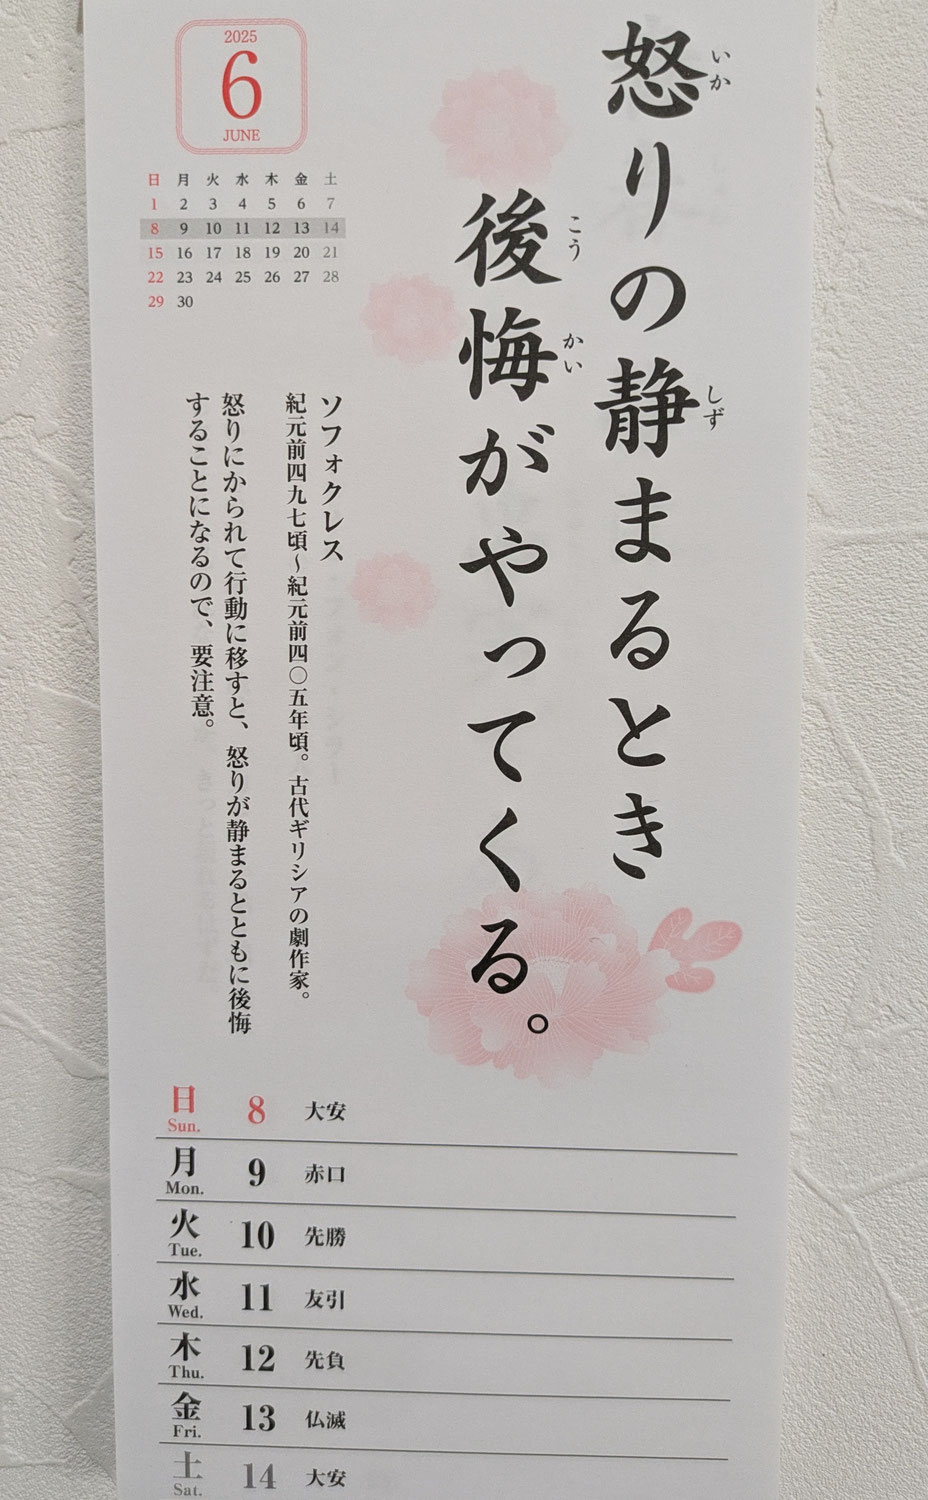 怒りの静まるとき
いか
しず
後悔がやってくる。
こう
かい
2025
6
JUNE
日 月 火 水 木 金 土
1 2 3 4 5 6 7
8 9 10 11 12 13 14
15 16 17 18 19 20 21
22 23 24 25 26 27 28
29 30
ソフォクレス
紀元前四九七頃～紀元前四〇五年頃。古代ギリシアの劇作家。
怒りにかられて行動に移すと、怒りが静まるとともに後悔
することになるので、要注意。
日 Sun. 8 大安
月 Mon. 9 赤口
火 Tue. 10 先勝
水 Wed. 11 友引
木 Thu. 12 先負
金 Fri. 13 仏滅
土 Sat. 14 大安